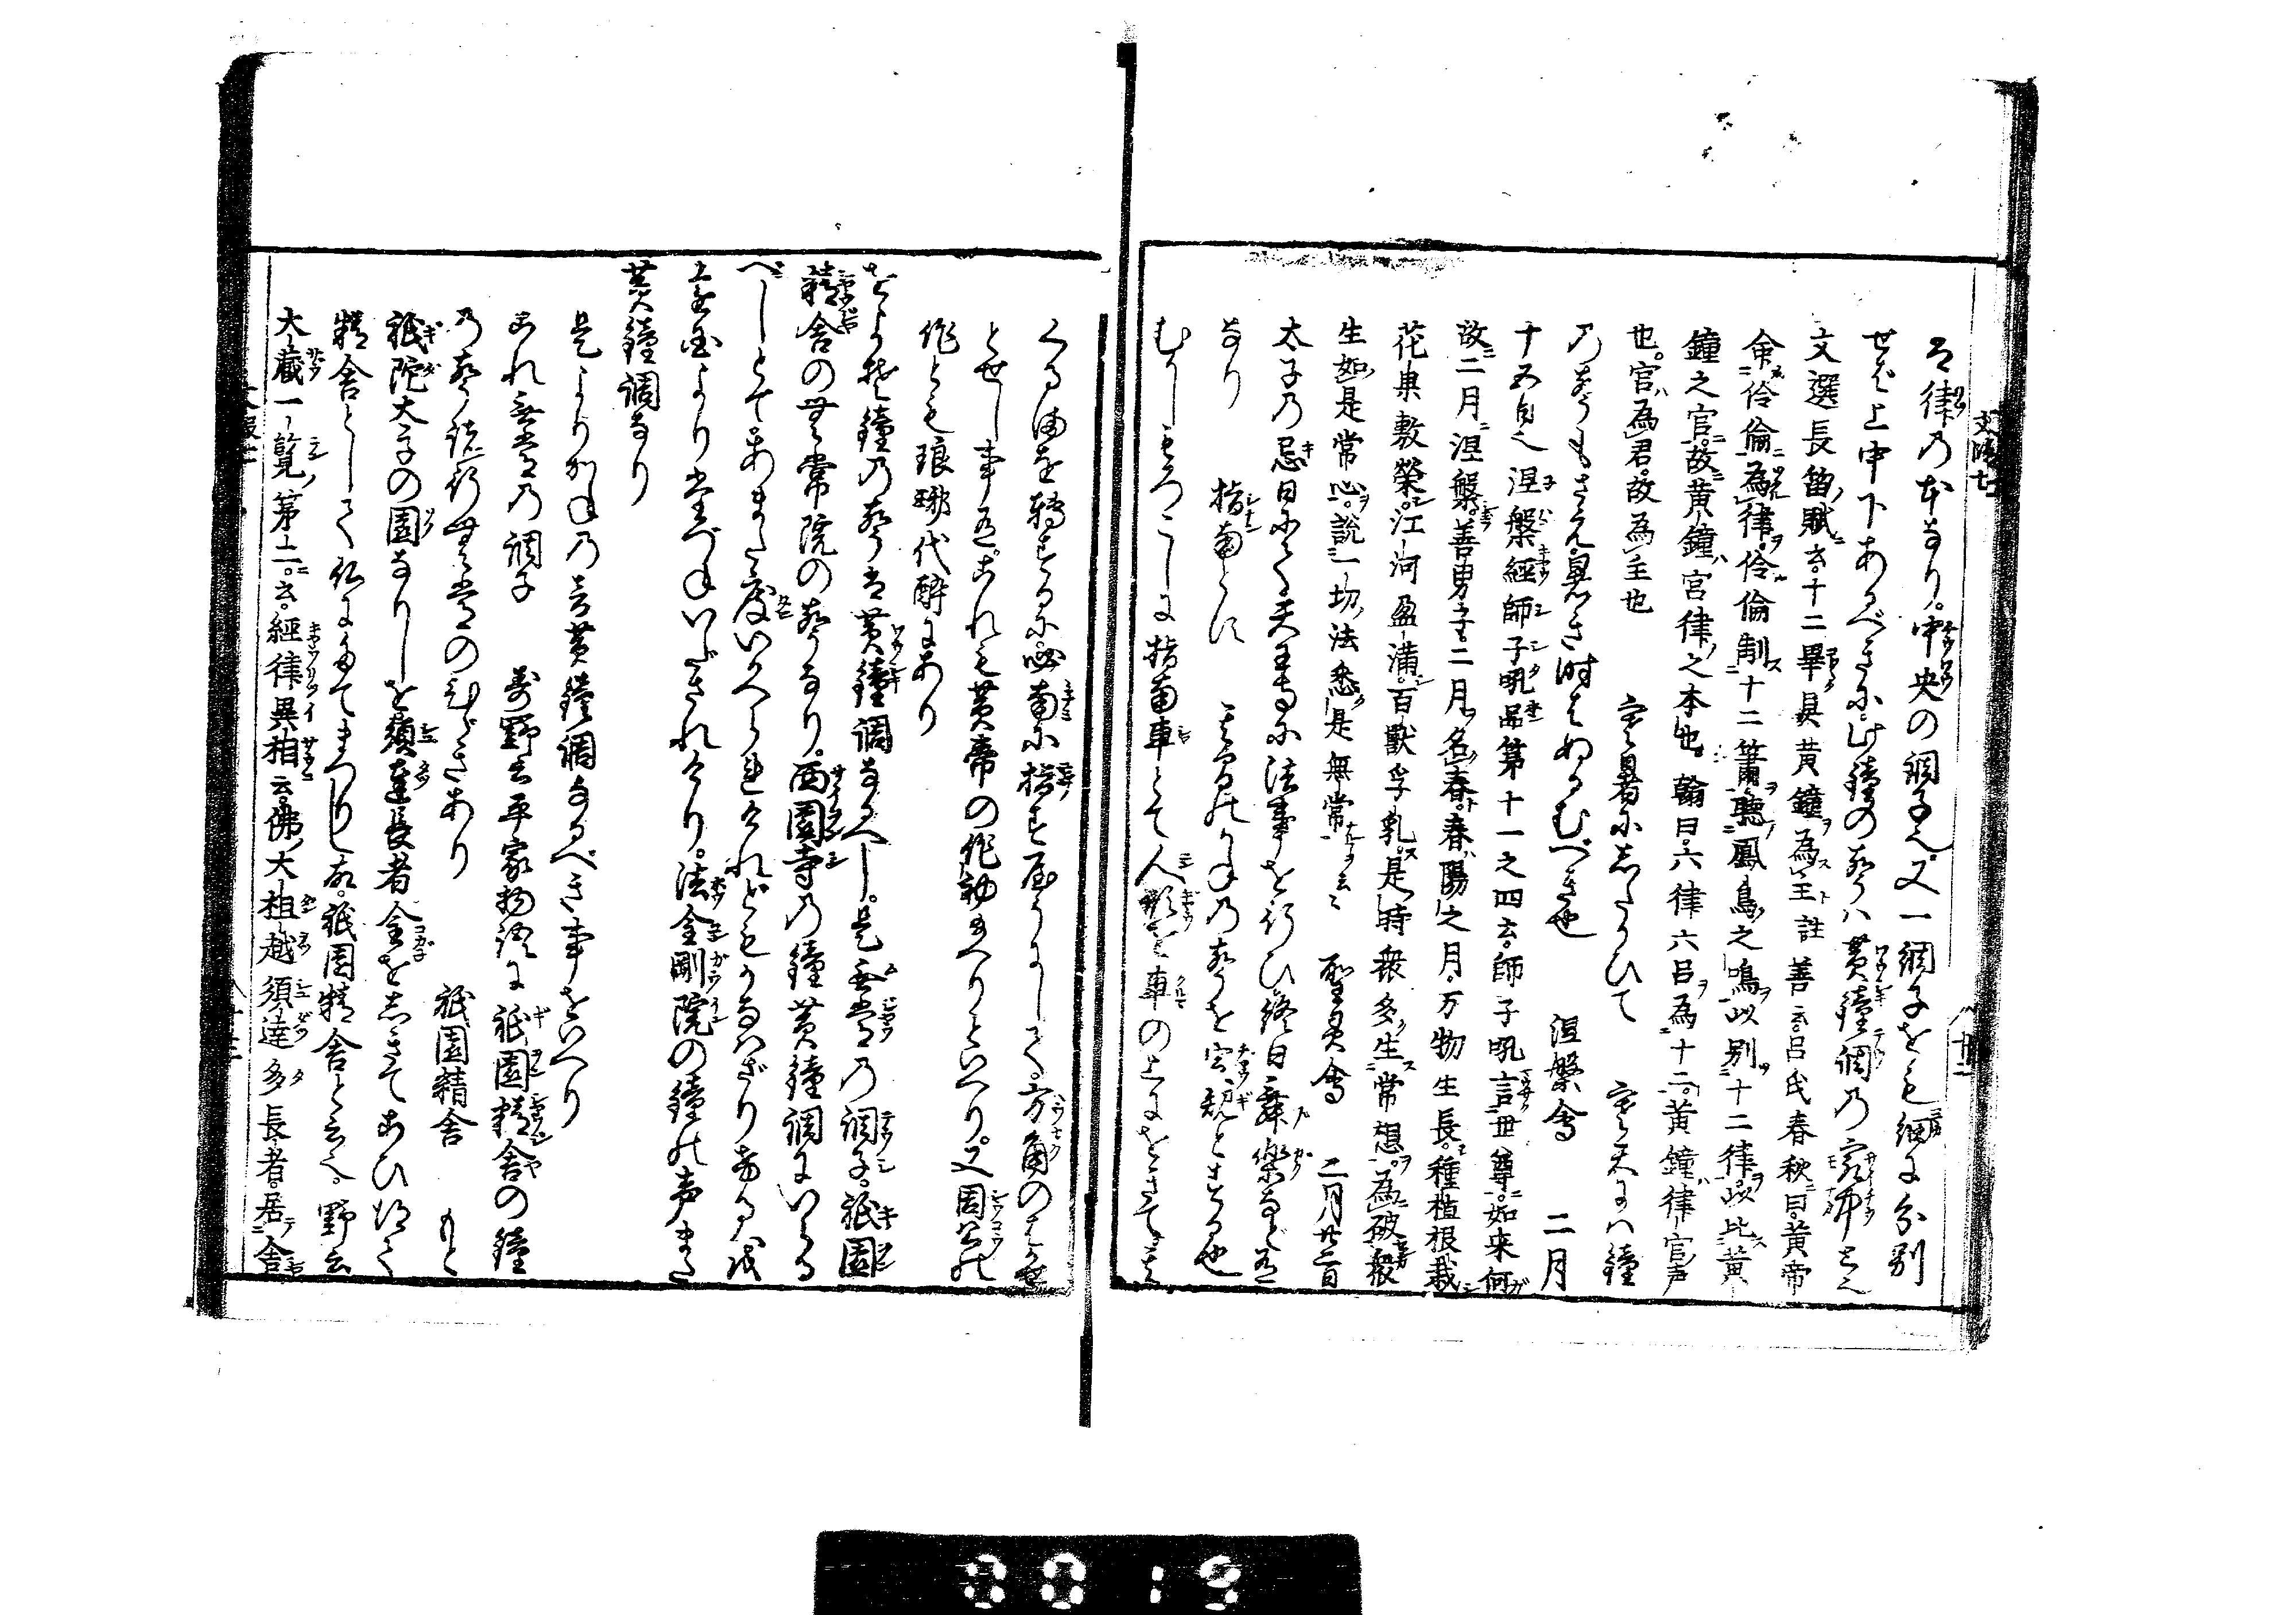 は律の本なり。中央の調子也。又一調子をも細に分別
せば上中下あるべきに。此鐘の声ハ黄鐘調の最中と也
文選長笛賦云十二畢具黄鐘為主註善云呂氏春秋曰黄帝
命伶倫為律。伶倫制十二筩聽鳳鳥之鳴以別十二律。以比黄
鐘之宮。故黄鐘宮律之本也。翰曰。六律六呂為十二。黄鐘律宮声
也。宮為君。故為主也　寒暑にしたがひて　寒天にハ鐘
の声もさえ暑き時はぬるむべき也　涅槃會　二月
十五日也涅槃經師子吼品第十一之四云。師子吼言世尊。如来何
故二月涅槃。善男子。二月名春。春陽之月。万物生長。種植根栽
花果敷榮。江河盈満。百獸孚乳。是時衆多生常想。為破衆
生如是常心。説一切法悉是無常云々　聖灵會　二月廿二日
太子の忌日にて天王寺に法事を行ひ終日舞樂など有
なり　指南とす　其間のかねの声を定規とする也
むかしもろこしに指南車とて人形を車の上にをきて。其
くるまを轉ずるに。必南に指ざすやうにして。方角のしるべ
とせし事有。これも黄帝の作初まへりといへり。又周公の
作とも琅琊代酔にあり
およそ鐘の声は黄鐘調なるべし。是無常の調子。祇園
精舎の無常院の声なり。西園寺の鐘黄鐘調にいる
べしとてあまた度いかへられけれどもかなハざりけるを
遠国よりたづねいだされけり。法金剛院の鐘の声また
黄鐘調なり
是よりかねの音黄鐘調なるべき事をいへり
これ無常の調子　寿野云平家物語に祇園精舎の鐘
の声諸行無常のひゞきあり　祇園精舎　もと
祇陀太子の園なりしを須達長者金をしきてあひかえて
精舎として仏にたてまつりし故。祇園精舎と云也。野云
大藏一覧第二。云。經律異相云。佛大祖越須達多長者。居舎